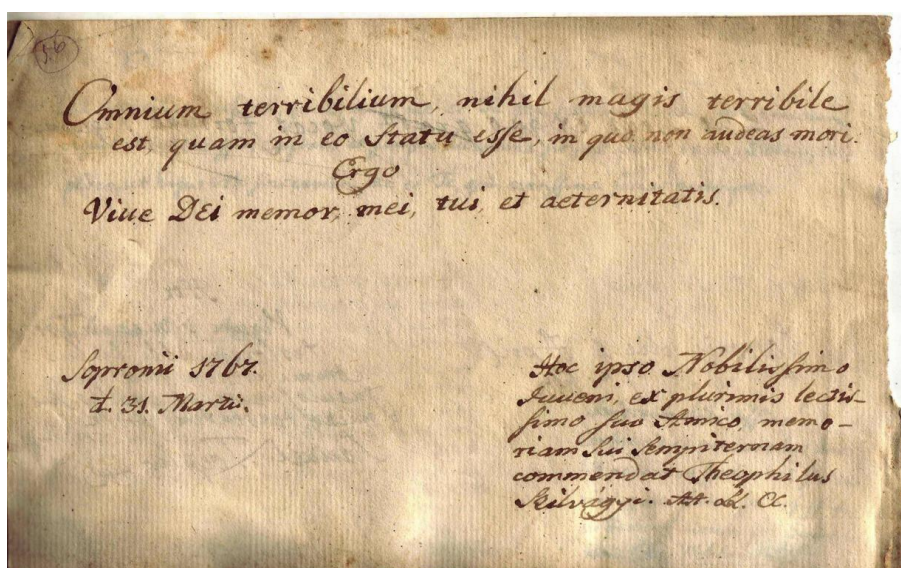 56
Omnium terribilium, nihil magis terribile
est, quam in eo Statu esse, in quo non audeas mori.
Ergo
Viue DEi memor, mei, tui, et aeternitatis.
Sopronii 1767.
d. 31. Martii.
Hoc ipso Nobilissimo
Juueni, ex plurimis lectis-
simo suo Amico, memo-
riam sui sempiternam
commendat Theophilus